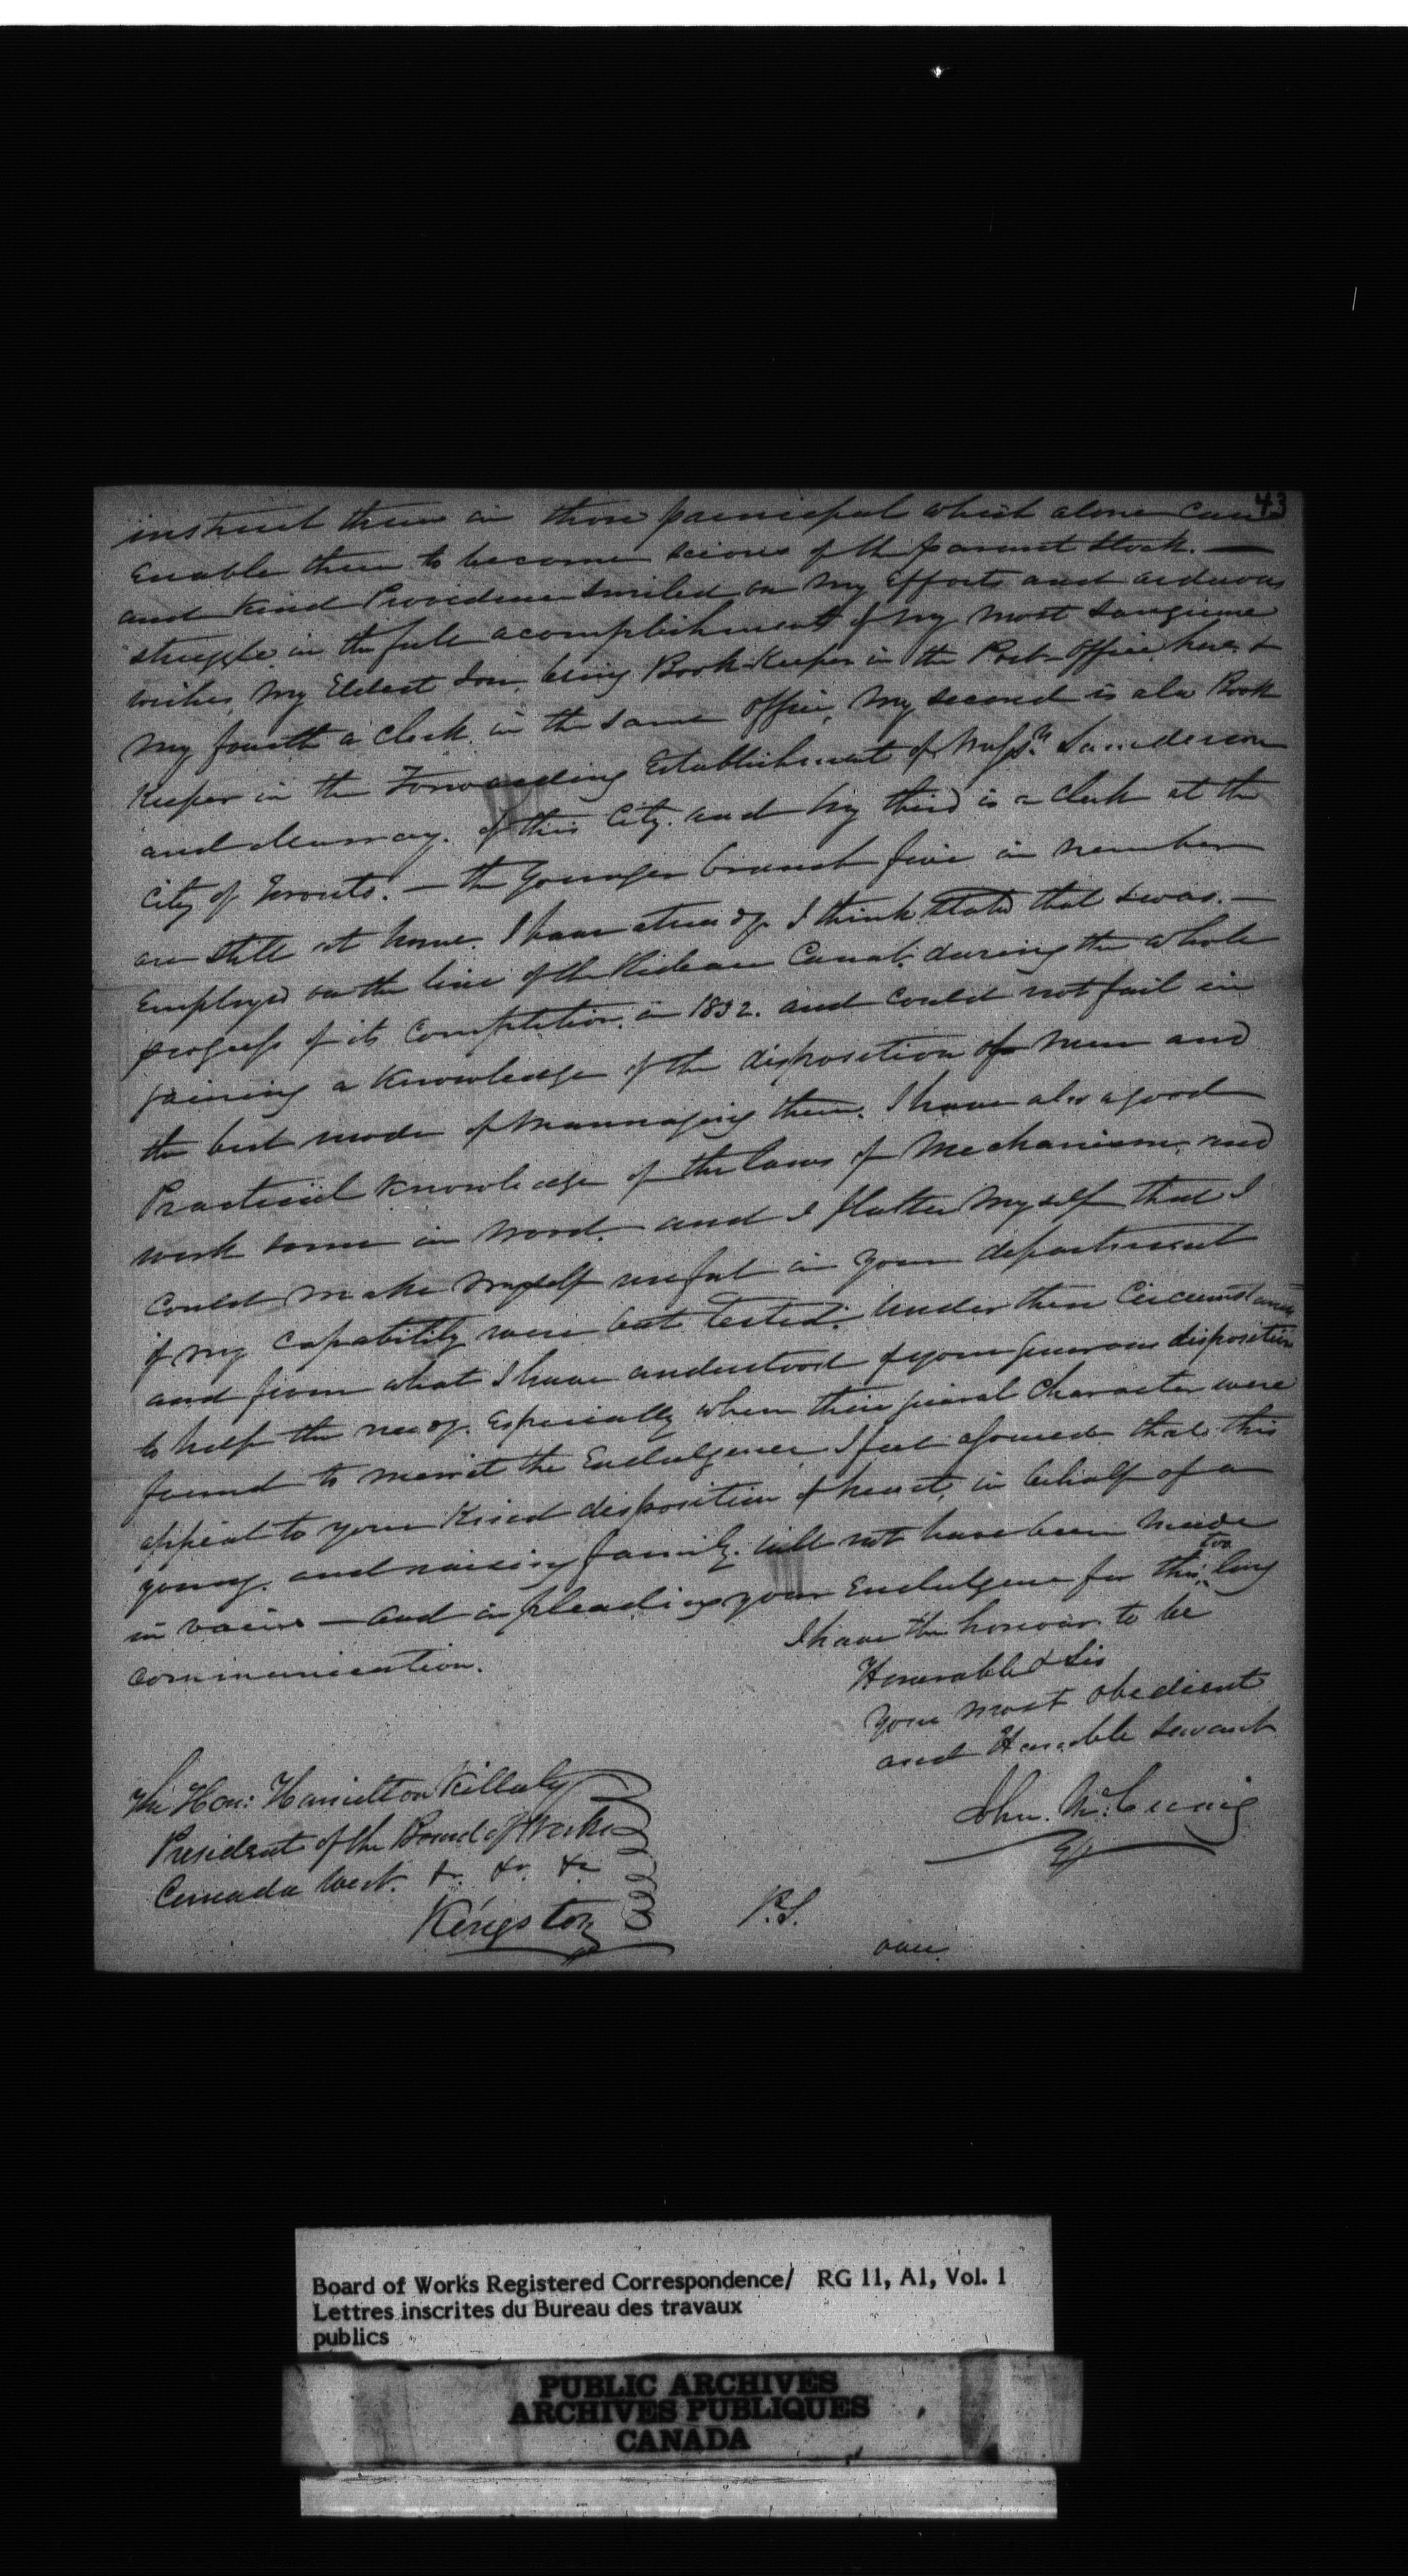 43
instruct them in those principal which alone can
Enable them to become scions of the parent stock. —
and Kind Providence smiled on my Efforts and arduous
struggle in the full acomplishment of my most sanguine
wishes, My Eldest Son, being Book-Keeper in the Post-Office here &
my fourth a Clerk in the same office, My second is also Book
Keeper in the Forwarding Establishment of Messrs. Sanderson
and Murray. of this City. and my third is a Clerk at the
City of Toronto. — the younger branch five in number
are still at home. I have already I think Stated that I was. —
Employed on the line of the Rideau Canal. during the whole
progress of its Completion. in 1832. and Could not fail in
gaining a Knowledge of the disposition of men and
the best mode of mannaging them. I have also a good
Practical Knowledge of the laws of Mechanism, and
work some in wood. and I flatter Myself that I
Could make myself useful in your department
if my capability were but tested. Under these Circumstances
and from what I have understood of your generous disposition
to help the needy. Especially when their general Character were
found to merrit the Endulgence I feel assured that this
appeal to your Kind disposition of heart, in behalf of a
young. and raising family. will not have been made
in vain — and in pleading your Endulgence for this too long
communication.
I have the honour to be
Honorable & Sir
your most obedient
and Humble Servant
John. McCuaig
The Hon: Hamilton Killaly
President of the Board of Works
Canada West. &. &c. &c
Kingston
P.S.
over.
Board of Works Registered Correspondence/ RG 11, A1, Vol. 1
Lettres inscrites du Bureau des travaux
publics
PUBLIC ARCHIVES
ARCHIVES PUBLIQUES
CANADA